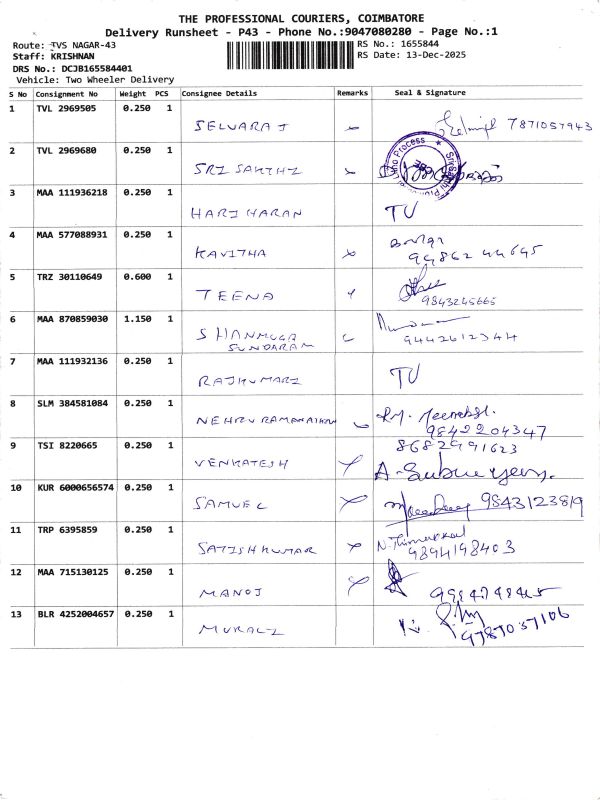 THE PROFESSIONAL COURIERS, COIMBATORE
Delivery Runsheet - P43 - Phone No.:9047080280 - Page No.:1
Route: TVS NAGAR-43 RS No.: 1655844
Staff: KRISHNAN RS Date: 13-Dec-2025
DRS No.: DCJB165584401
Vehicle: Two Wheeler Delivery
S No Consignment No Weight PCS Consignee Details Remarks Seal & Signature
1 TVL 2969505 0.250 1
SELVARAJ 7871057943
2 TVL 2969680 0.250 1
SRI SAKTHI
3 MAA 111936218 0.250 1
HARIHARAN TV
4 MAA 577088931 0.250 1
KAVITHA 9486244645
5 TRZ 30110649 0.600 1
TEENA
9843245665
6 MAA 870859030 1.150 1
SHANMUGA
SUNDARAM 9442612344
7 MAA 111932136 0.250 1
RAJKUMARI TV
8 SLM 384581084 0.250 1
NEHRU RAMANATHAN
9842204347
9 TSI 8220665 0.250 1 8682991623
VENKATESH
10 KUR 6000656574 0.250 1
SAMUEL 9843123819
11 TRP 6395859 0.250 1
SATISHKUMAR 9894198403
12 MAA 715130125 0.250 1
MANOJ
13 BLR 4252004657 0.250 1
MURALI 9787057106